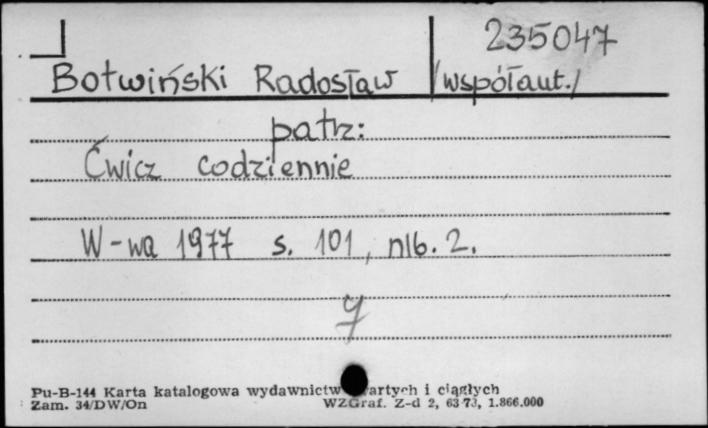 235047
Botwiński Radosław /współaut./
patrz:
Ćwicz codziennie
W-wa 1977 s. 101, nlb. 2.
Pu-B-144 Karta katalogowa wydawnictw i ciągłych
Zam. 34/DW/On WZGraf. Z-d 2, 63 73, 1.866.000